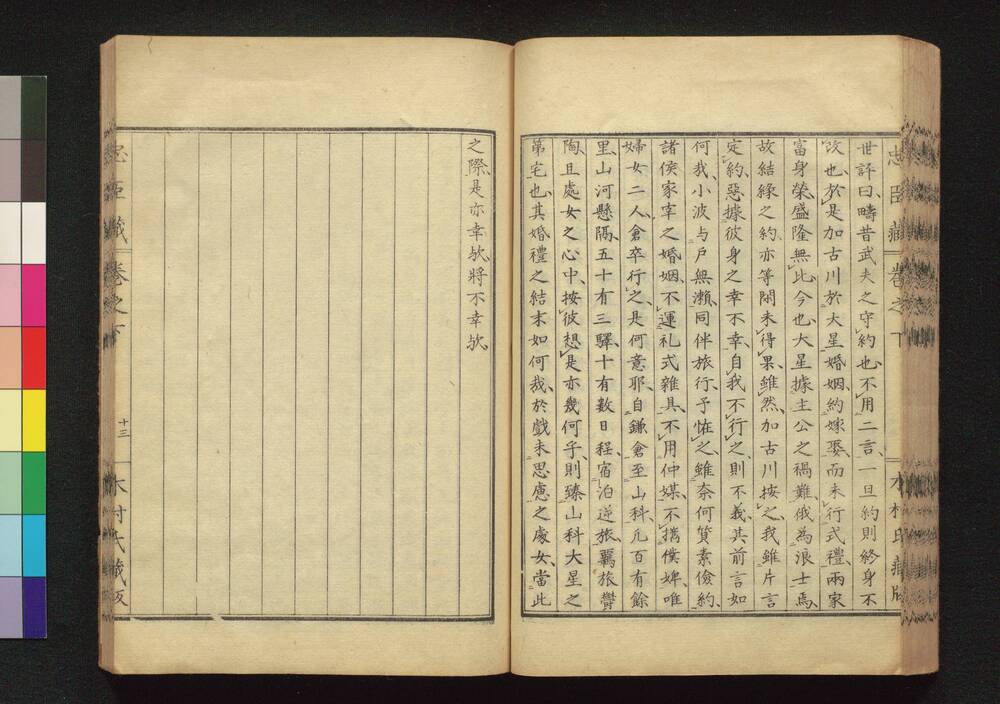 世評曰、疇昔武夫之守約也、不用二言、一旦約則終身不
改也、於是加古川於大星婚姻約嫁娶而未行式禮、兩家
富身榮盛隆無比、今也大星據主公之禍難、俄為浪士焉、
故結緣之約亦等閑未得果、雖然加古川按之、我雖片言
定約、惡據彼身之幸不幸、自我不行之、則不義其前言如
何、我小波与戸無瀬、同伴旅行、予恠之、雖奈何貧素儉約、
諸侯家宰之婚姻、不運礼式雜具、不用仲媒、不携僕婢、唯
婦女二人倉卒行之、是何意耶、自鎌倉至山科凡百有餘
里、山河懸隔、五十有三驛、十有數日程、宿泊逆旅、羈旅欝
陶、且處女之心中、按彼想是亦幾何乎、則臻山科大星之
第宅也、其婚禮之結末如何哉、於戲未思慮之處女、當此
之際、是亦幸欤、將不幸欤、
忠臣藏 卷之下
木村氏藏版
忠臣藏 卷之下
十三
木村氏藏版